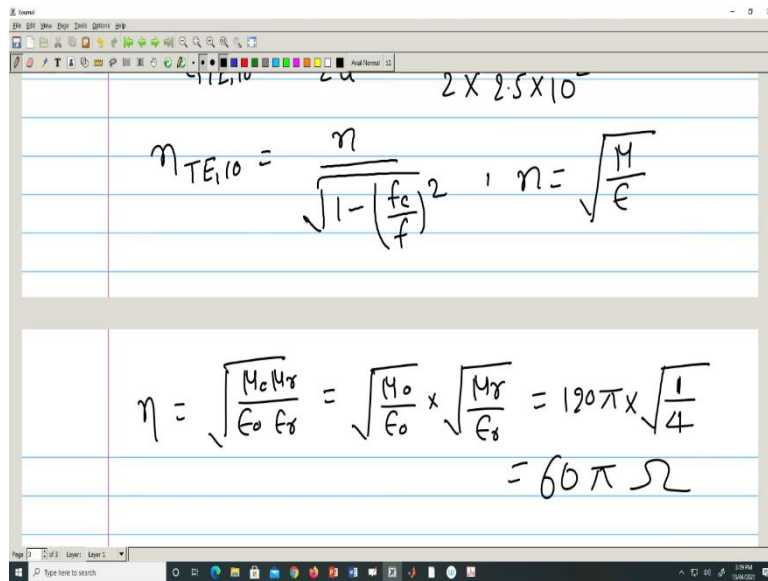 Journal
File Edit View Page Tools Options Help
Arial Normal 12
2 X 2.5X10
η TE,10 = η / √(1 - (fc/f)²) , η = √(μ/ε)
η = √(μo μr / εo εr) = √(μo/εo) × √(μr/εr) = 120π × √(1/4)
= 60 π Ω
Page 3 of 3 Layer: Layer 1
Type here to search
3:19 PM
13/04/2021